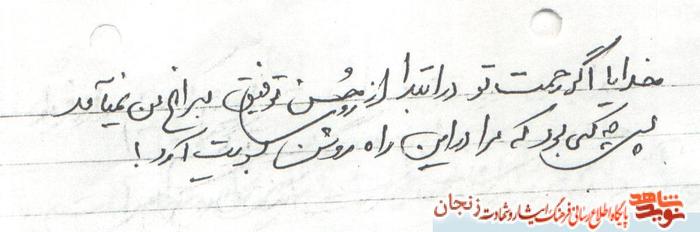 خدایا اگر رحمت تو در ابتدا از روی حُسن توفیق بسراغ من نمیآمد
پس چه کسی بود که مرا در این راه روشن بسویت آورد!
نوید شاهد
پایگاه اطلاع رسانی فرهنگ ایثار و شهادت زنجان